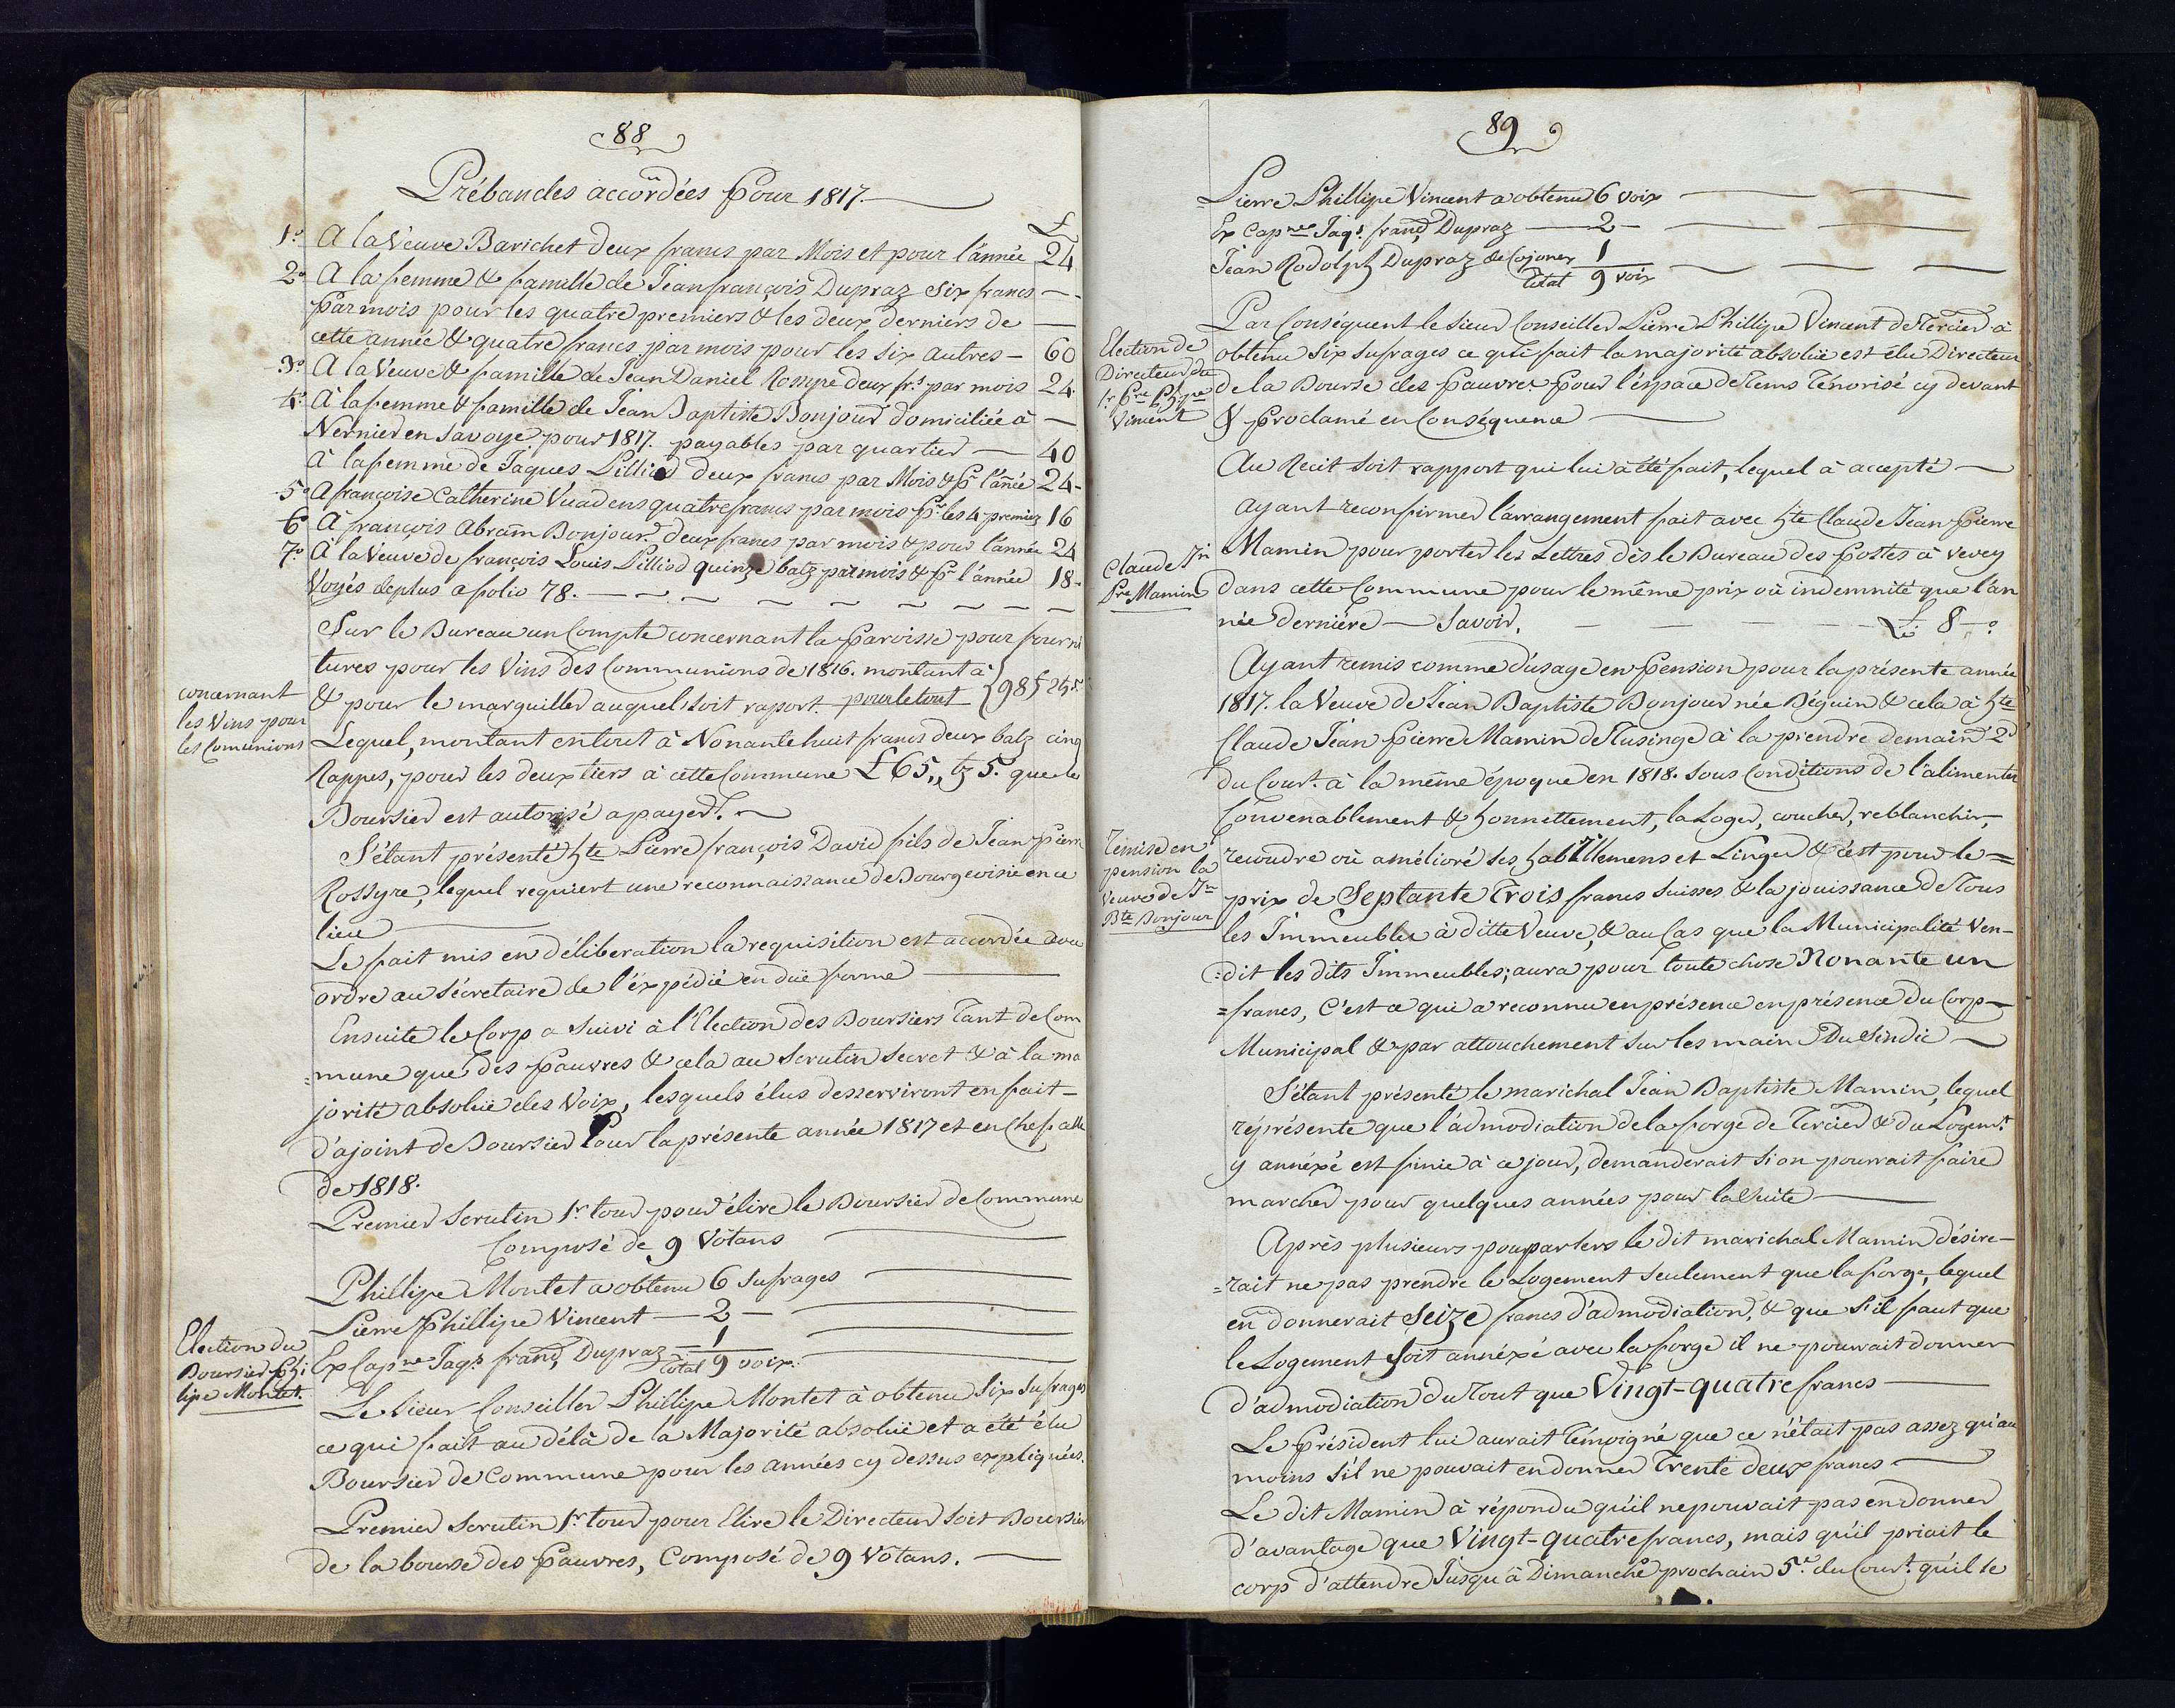 88
Prébandes accordées pour 1817.
£
1.° A la Veuve Barichet deux francs par Mois et pour l'année 24
2.° A la femme & famille de Jean françois Dupraz Six francs —
par mois pour les quatre premiers & les deux derniers de —
cette année & quatre francs par mois pour les six autres — 60
3.° A la Veuve & famille de Jean Daniel Rossyre deux fr.s par mois 24.
4.° A la femme & famille de Jean Baptiste Bonjour domiciliée à —
Nernier en Savoye pour 1817. payables par quartier — 40
à la femme de Jaques Pilliod deux francs par Mois & pr l'année 24-
5.° A françoise Catherine Vuadens quatre francs par mois pr les 4 premiers 16
6 A françois Abram Bonjour. deux francs par mois & pour l'année 24
7.° A la Veuve de françois Louis Pilliod quinze batz par mois & pr l'année 18-
Voyés de plus a folio 78. —
Sur le Bureau un Compte concernant la paroisse pour fourni
tures pour les Vins des Communions de 1816. montant à
concernant
les Vins pour
les Comunions
& pour le marguiller auquel soit raport. pour le tout } 98 f 2 b 5 r.
Lequel, montant en tout à Nonante huit francs deux batz cinq
Rappes, pour les deux tiers à cette Commune £ 65,, bz 5. que le
Boursier est autorisé a payer. —
S'étant présenté hte Pierre françois David fils de Jean Pierre
Rossyre, lequel requiert une reconnaissance de Bourgeoisie en ce
lieu —
Le fait mis en déliberation la requisition est accordée avec
ordre au Sécretaire de l'éxpédié en düe forme —
Ensuite le Corp a Suivi à l'Election des Boursiers Tant de Com
=mune que des pauvres & cela au Scrutin Secret & à la ma
jorité absolüe des Voix, lesquels élus desserviront en fait-
d'ajoint de Boursier Pour la présente année 1817 et en Chef celle
de 1818.
Premier Scrutin 1.r tour pour élire le Boursier de Commune
Composé de 9 Vôtans —
Phillipe Montet a obtenu 6 Sufrages —
Pierre Phillipe Vincent — 2 —
Ex Capne Jaq.s franç Dupraz — 1
Total 9 voix.
Election du
Boursier Phi
lipe Montet.
Le Sieur Conseiller Phillipe Montet à obtenu Six Sufrages
ce qui fait au délà de la Majorité absolüe et a été élu
Boursier de Commune pour les années cy dessus expliquées.
Premier Scrutin 1.r tour pour Elire le Directeur Soit Boursier
de la bourse des pauvres, Composé de 9 Vôtans. —
89
Pierre Phillipe Vincent a obtenu 6 voix —
Ex Capne Jaq.s franç Dupraz — 2 —
Jean Rodolph Dupraz de Cojonex 1
Total 9 voix
Par Conséquent le Sieur Conseiller Pierre Phillipe Vincent de Tercier à
Election de
Directeur du
Sr Pre Phpe
Vincent
obtenu Six Sufrages ce qui fait la majorité absolüe est élu Directeur
de la Bourse des pauvres pour l'éspace de Tems Ténorisé cy devant
& proclamé en Conséquence —
Au Recit Soit rapport qui lui à été fait, lequel à accepté —
Ayant reconfirmer l'arrangement fait avec hte Claude Jean Pierre
Claude Jn
Pre Mamin
Mamin pour porter les Lettres dès le Bureau des Postes à Vevey
dans cette Commune pour le même prix où indemnité que l'an
née dernière — Savoir. — £ 8 —
Ayant remis comme d'usage en pension pour la présente année
1817. la Veuve de Jean Baptiste Bonjour née Béguin & cela à hte
Claude Jean Pierre Mamin de Tusinge à la prendre demain 2d
du Court. à la même époque en 1818. Sous Conditions de l'alimenter
Convenablement & honnettement, la Loger, coucher, reblanchir,
Remise en
pension la
Veuve de Jn
Bte Bonjour
recoudre où amélioré ses habillemens et Linge & c'est pour le =
prix de Septante Trois francs Suisses & la jouissance de Tous
les Immeubles à ditte Veuve, & au Cas que la Municipalité Ven-
=dit les dits Immeubles; aura pour toute chose Nonante un
=francs, C'est ce qui a reconnu en présence en présence du Corp-
Municipal & par attouchement Sur les main Du Sindic —
S'étant présenté le marichal Jean Baptiste Mamin, lequel
réprésente que l'admodiation de la forge de Tercier & du Logemt.
y annéxé est finie à ce jour, demanderait Si on pourrait faire
marcher pour quelques années pour la Suite —
Après plusieurs pourparlers le dit marichal Mamin désire-
=rait ne pas prendre le Logement Seulement que la forge, lequel
en donnerait Seize francs d'admodiation, & que S'il faut que
le Logement Soit annéxé avec la forge il ne pourrait donner
d'admodiation du Tout que Vingt-quatre francs —
Le Président lui aurait Témoigné que ce n'était pas assez qu'au
moins S'il ne pouvait en donner Trente deux francs —
Le dit Mamin à répondu qu'il ne pouvait pas en donner
d'avantage que Vingt-quatre francs, mais qu'il priait le
corp d'attendre Jusqu'à Dimanche prochain 5.e du Court. qu'il se